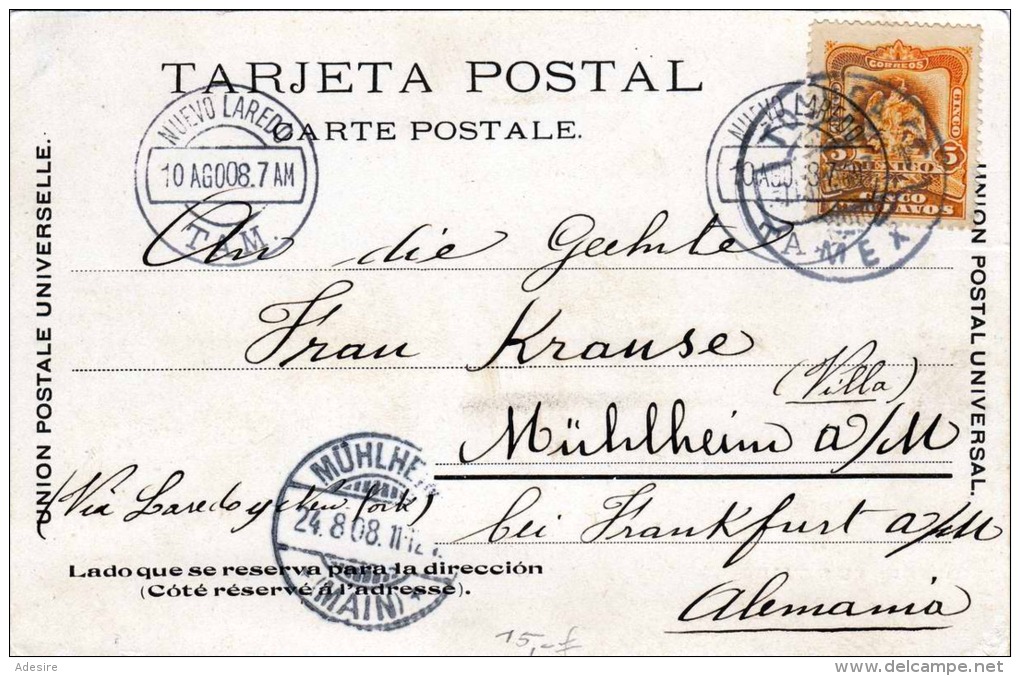 TARJETA POSTAL
CARTE POSTALE.
CORREOS
CINCO
5 MEXICO 5
CINCO CENTAVOS
NUEVO LAREDO
10 AGO08.7AM
TAM.
NUEVO LAREDO
10 AGO
MEX
UNION POSTALE UNIVERSELLE.
UNION POSTAL UNIVERSAL.
An die Geehrte
Frau Krause
(Villa)
Mühlheim a/M
(Via Laredo y New York)
bei Frankfurt a/M
Alemania
MÜHLHEIM
24.8.08.11-12
*(MAIN)*
Lado que se reserva para la dirección
(Côté réservé á l'adresse).
15,-
Adesire
delcampe.net